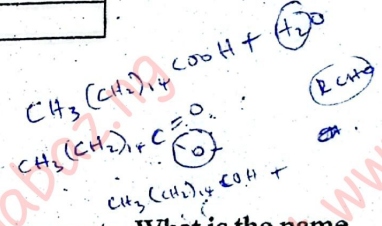 CH₃(CH₂)₁₄COOH + H₂O
RCHO
CH₃(CH₂)₁₄C=O
O-
CH₃(CH₂)₁₄COH +
What is the name